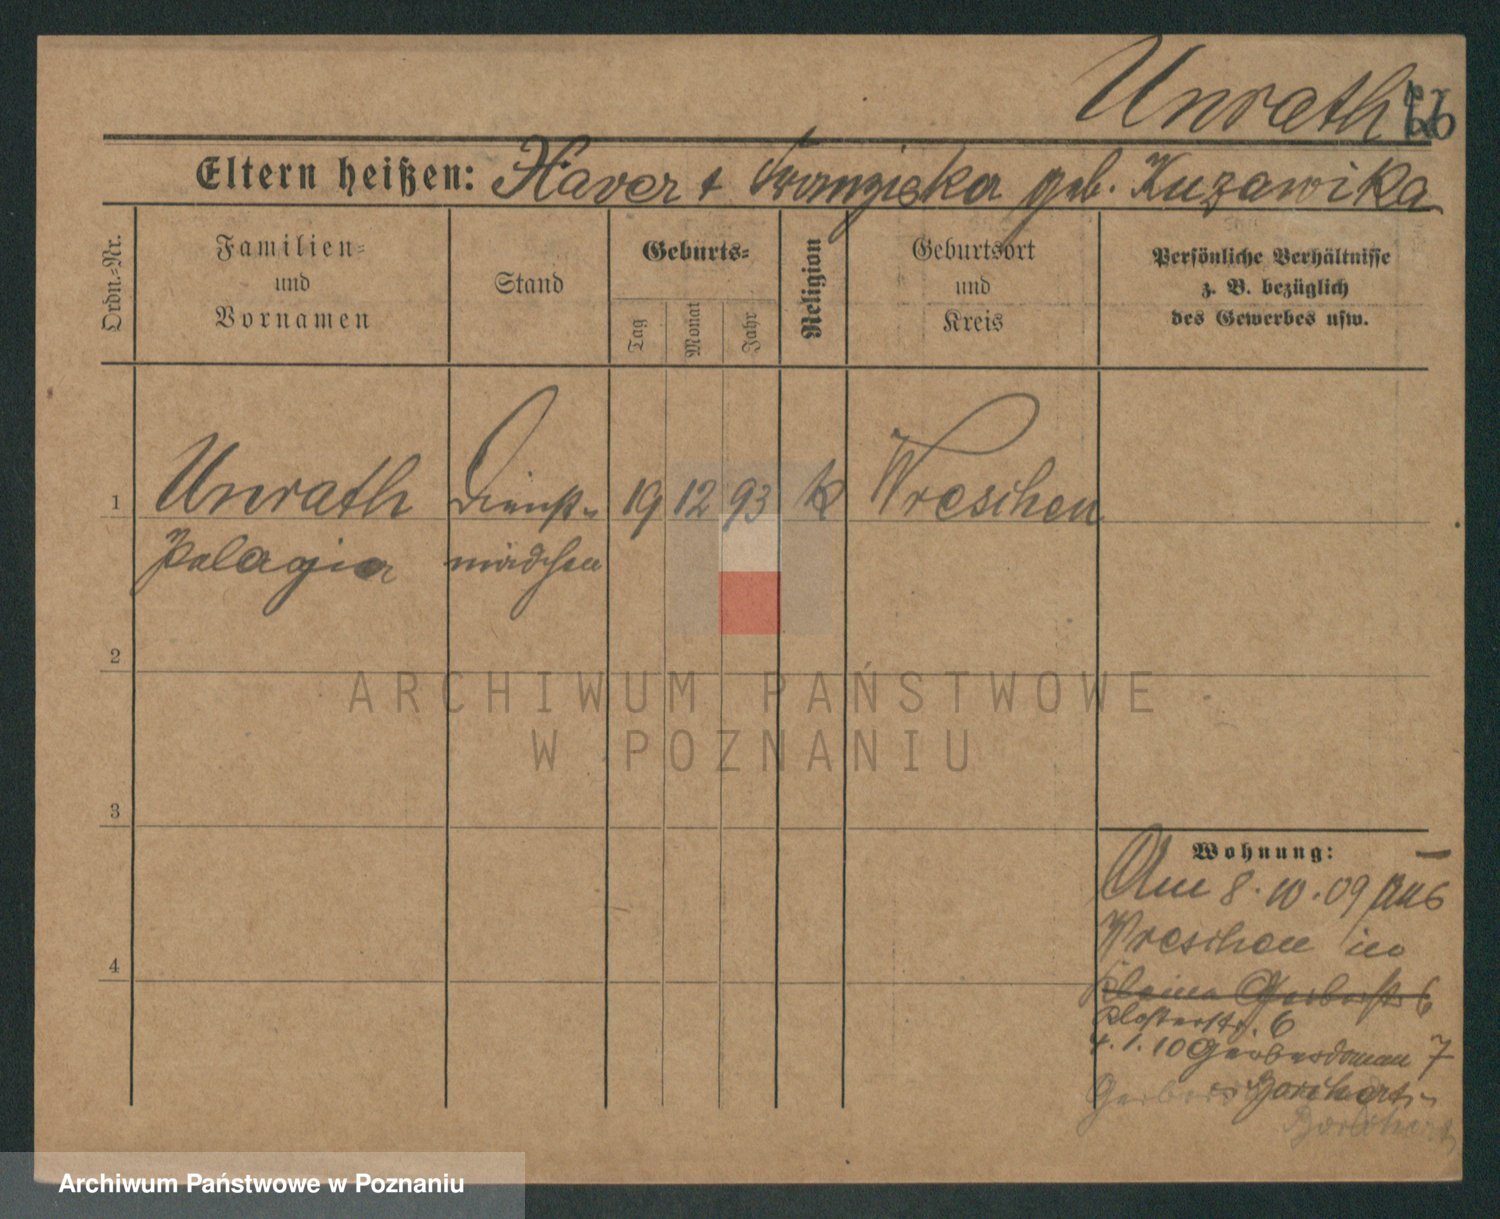 Unrath
Eltern heißen: Xaver + Franziska geb. Kuzawska
Ordn.-Nr.
Familien- und Vornamen
Stand
Geburts-
Tag
Monat
Jahr
Religion
Geburtsort und Kreis
Persönliche Verhältnisse
z. B. bezüglich
des Gewerbes usw.
1 Unrath Dienst- 19 12 93 k Wreschen
Pelagia mädchen
2
3
4
ARCHIWUM PAŃSTWOWE
W POZNANIU
Wohnung:
Am 8.10.09 aus
Wreschen in
Kleine Gerberstr. 6
Klosterstr. 6
4.1.10 Gerberdamm 7
Gerber Borchert
Borchert
Archiwum Państwowe w Poznaniu